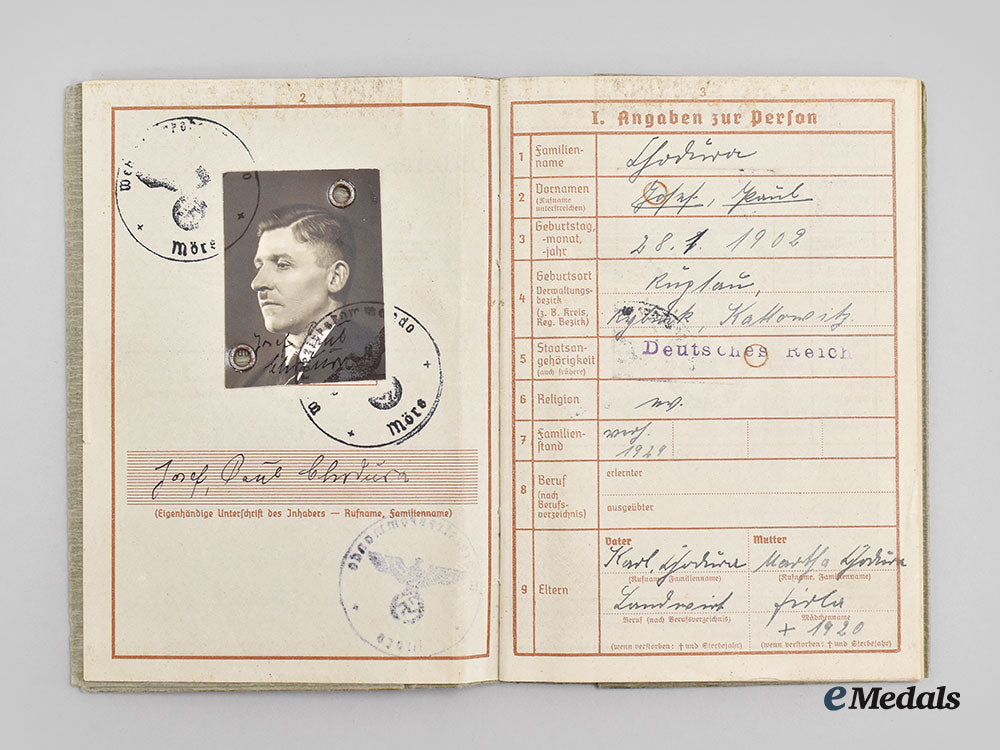 2
Möre
Möre
Josef, Paul Chodura
(Eigenhändige Unterschrift des Inhabers — Rufname, Familienname)
3
I. Angaben zur Person
1 Familien-
name
Chodura
2 Vornamen
(Rufname
unterstreichen)
Josef, Paul
3 Geburtstag,
-monat,
-jahr
28. 1. 1902
4 Geburtsort
Verwaltungs-
bezirk
(z. B. Kreis,
Reg. Bezirk)
Ruptau,
Rybnik, Kattowitz
5 Staatsan-
gehörigkeit
(auch frühere)
Deutsches Reich
6 Religion
ev.
7 Familien-
stand
verh.
1929
8 Beruf
(nach
Berufs-
verzeichnis)
erlernter
ausgeübter
9 Eltern
Vater
Karl, Chodura
(Rufname, Familienname)
Landwirt
Beruf (nach Berufsverzeichnis)
(wenn verstorben: † und Sterbejahr)
Mutter
Martha Chodura
(Rufname, Familienname)
Firla
Mädchenname
+ 1920
(wenn verstorben: † und Sterbejahr)
eMedals